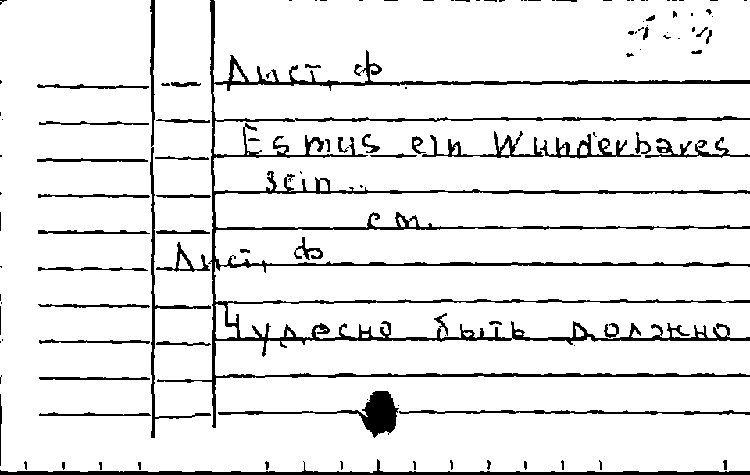 Лист, Ф
Es mus ein Wunderbares
sein...
см.
Лист, Ф
Чудесно быть должно